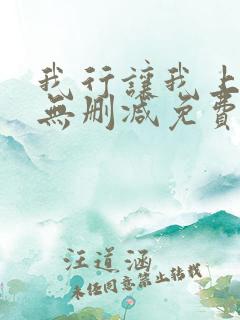 我行讓我上
無刪減免費
汪道涵
未經同意禁止轉載